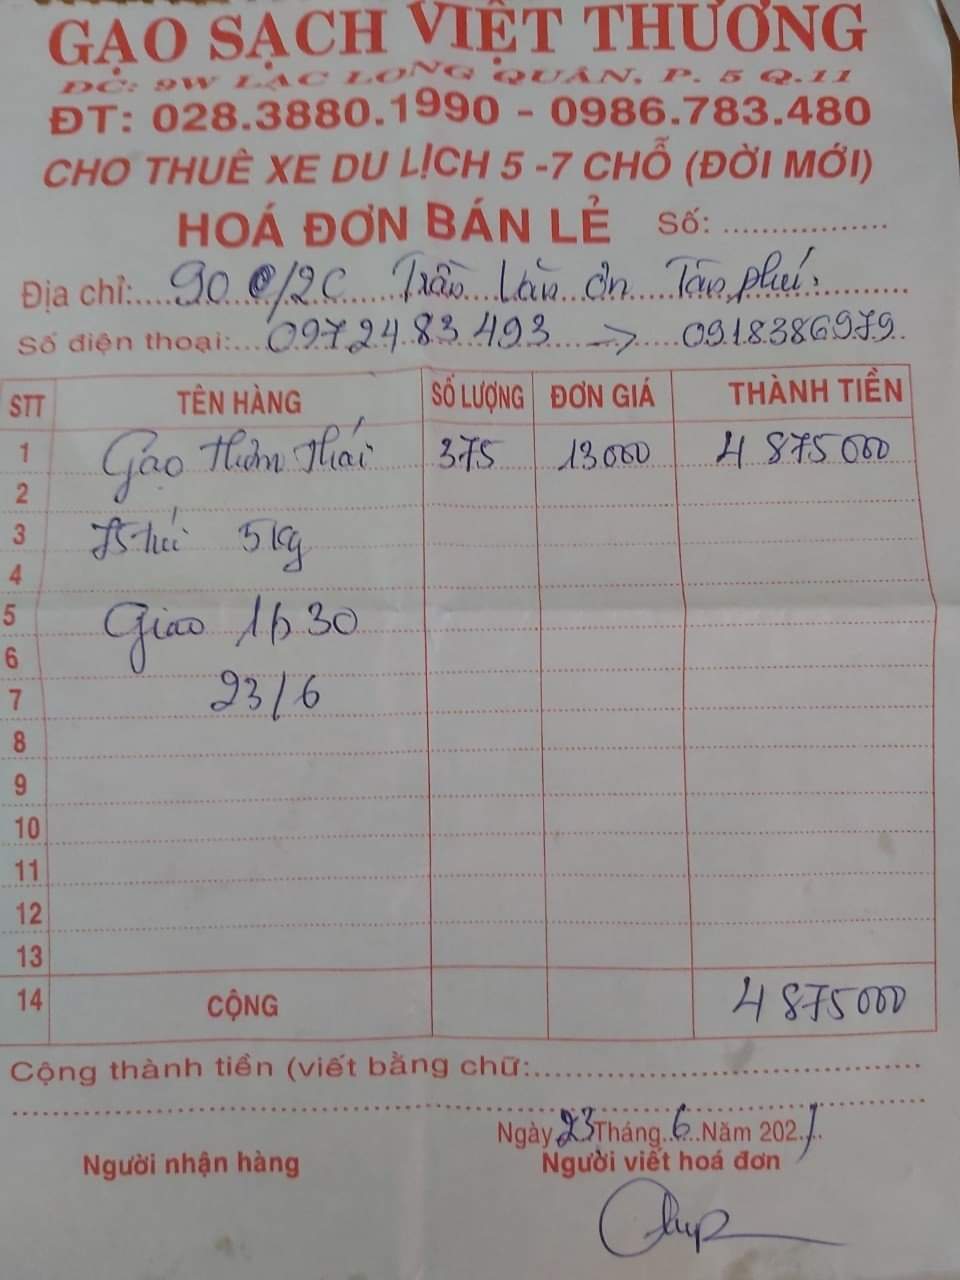 GẠO SẠCH VIỆT THƯƠNG
ĐC: 9W LẠC LONG QUÂN, P. 5 Q.11
ĐT: 028.3880.1990 - 0986.783.480
CHO THUÊ XE DU LỊCH 5 -7 CHỖ (ĐỜI MỚI)
HOÁ ĐƠN BÁN LẺ Số:
Địa chỉ: 90 C/2C Trần Văn Ơn Tân phú.
Số điện thoại: 0972483493 → 0918386979
STT TÊN HÀNG SỐ LƯỢNG ĐƠN GIÁ THÀNH TIỀN
1 Gạo thơm thái 375 13000 4 875000
2
3 75 túi 5kg
4
5 Giao 1h30
6
7 23/6
8
9
10
11
12
13
14 CỘNG 4 875000
Cộng thành tiền (viết bằng chữ:
Ngày 23 Tháng 6 Năm 2021
Người nhận hàng Người viết hoá đơn